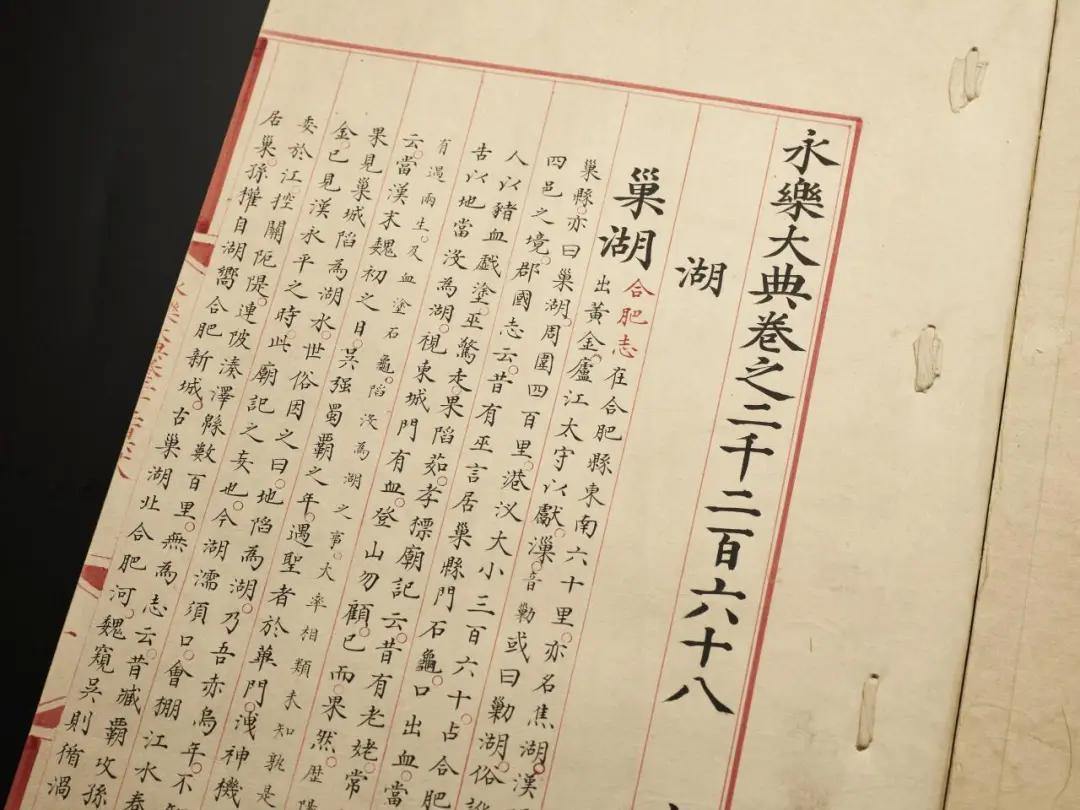 永樂大典卷之二千二百六十八
湖
巢湖
合肥志
在合肥縣東南六十里亦名焦湖漢
巢縣亦曰巢湖周圍四百里港汊大小三百六十占合肥
出黃金廬江太守以獻漅音勦或曰勦湖俗
四邑之境郡國志云昔有巫言居巢縣門石龜口出血當
人以豬血戲塗巫驚走果陷茹孝標廟記云昔有老姥常
古以地當沒為湖視東城門有血登山勿顧已而果然歷陽
有遇兩生及血塗石龜陷沒為湖之事大率相類未知孰是
云當漢末魏初之日吳强蜀霸之年遇聖者於蓽門洩神機
果見巢城陷為湖水世俗因之曰地陷為湖乃吾赤烏年不
金已見漢永平之時此廟記之妄也今湖濡須口會搠江水春
委於江控關阨隄連陂湊澤緜數百里無為志云昔臧霸攻孫
居巢孫權自湖嚮合肥新城古巢湖北合肥河魏窺吳則循渦